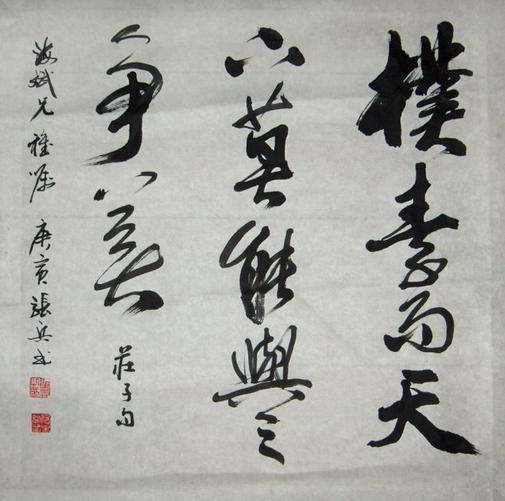 樸素而天
下莫能與之
争美
莊子句
海斌兄雅嘱 庚寅 張兵書